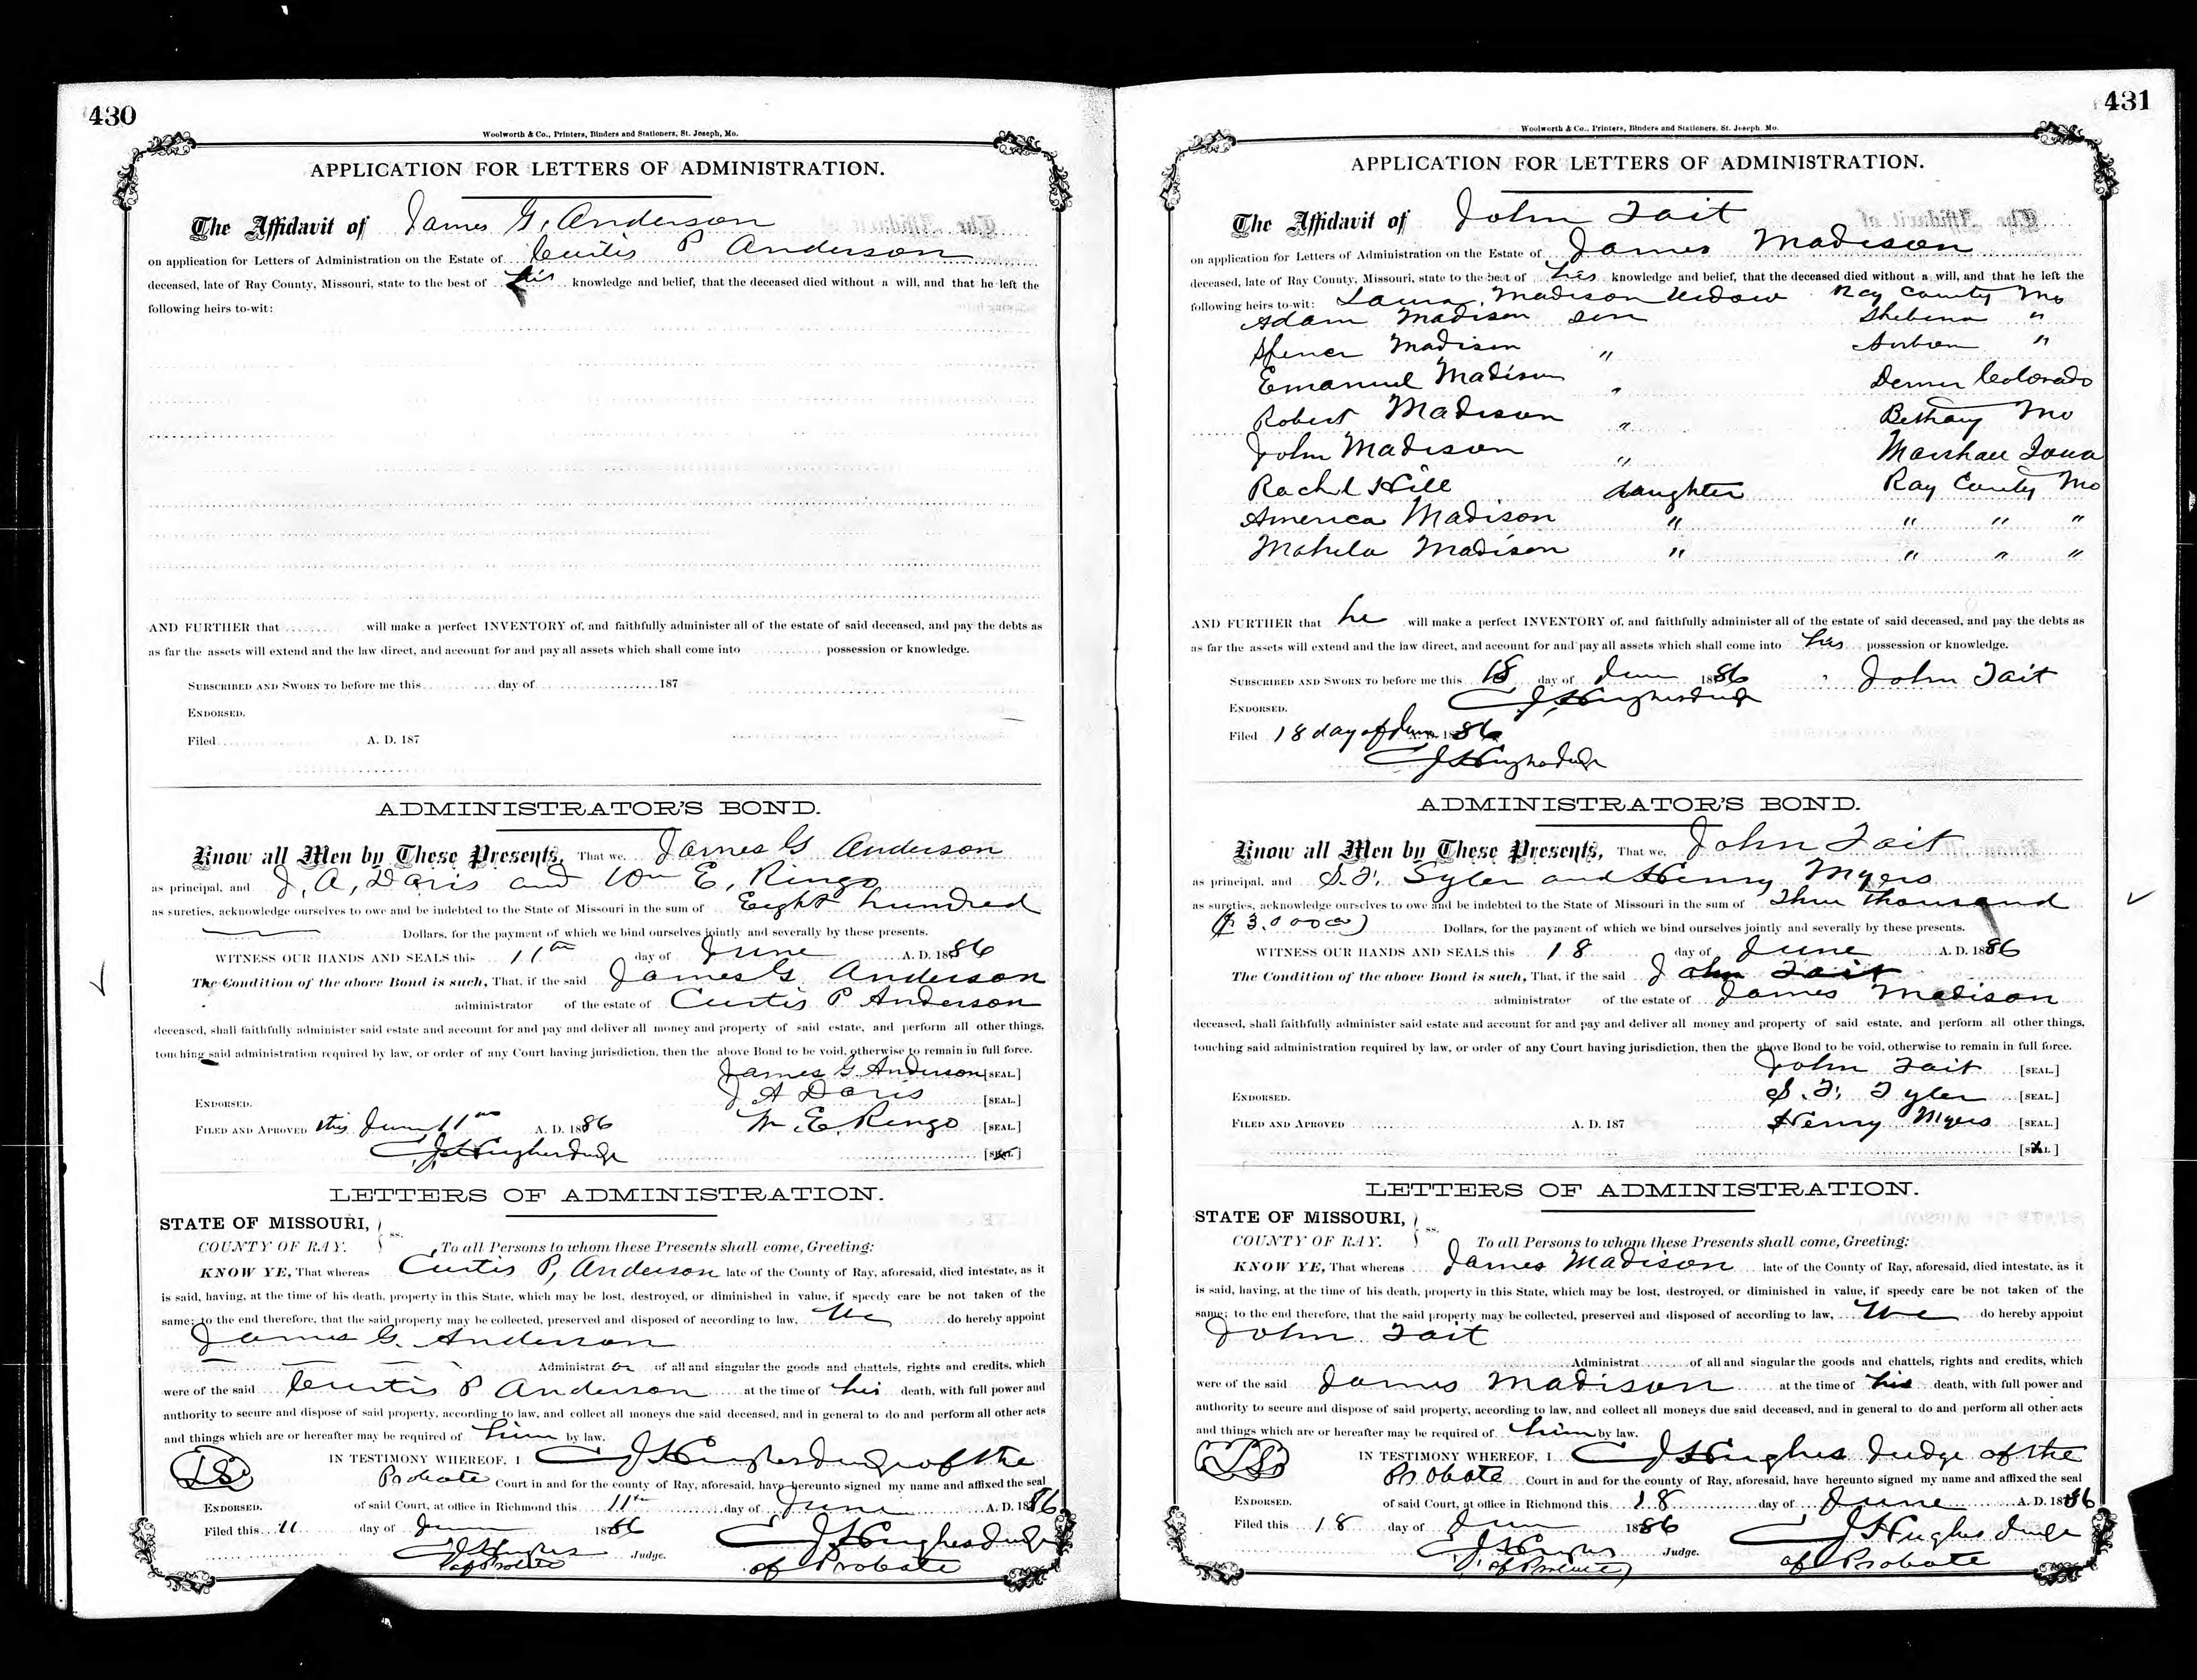 430
Woolworth & Co., Printers, Binders and Stationers, St. Joseph, Mo.
APPLICATION FOR LETTERS OF ADMINISTRATION.
The Affidavit of James G. Anderson
on application for Letters of Administration on the Estate of Curtis P Anderson
deceased, late of Ray County, Missouri, state to the best of his knowledge and belief, that the deceased died without a will, and that he left the
following heirs to-wit:
AND FURTHER that will make a perfect INVENTORY of, and faithfully administer all of the estate of said deceased, and pay the debts as
as far the assets will extend and the law direct, and account for and pay all assets which shall come into possession or knowledge.
SUBSCRIBED AND SWORN TO before me this day of 187
ENDORSED.
Filed A. D. 187
ADMINISTRATOR'S BOND.
Know all Men by These Presents, That we, James G Anderson
as principal, and J, A, Davis and Wm E, Ringo
as sureties, acknowledge ourselves to owe and be indebted to the State of Missouri in the sum of Eight hundred
Dollars, for the payment of which we bind ourselves jointly and severally by these presents.
WITNESS OUR HANDS AND SEALS this 11th day of June A. D. 1886
The Condition of the above Bond is such, That, if the said James G Anderson
administrator of the estate of Curtis P Anderson
deceased, shall faithfully administer said estate and account for and pay and deliver all money and property of said estate, and perform all other things,
touching said administration required by law, or order of any Court having jurisdiction, then the above Bond to be void, otherwise to remain in full force.
James G. Anderson [SEAL.]
J A Davis [SEAL.]
ENDORSED.
W. E. Ringo [SEAL.]
FILED AND APROVED this June 11th A. D. 1886
[SEAL.]
C J Hughes Judge
LETTERS OF ADMINISTRATION.
STATE OF MISSOURI, } ss.
COUNTY OF RAY. To all Persons to whom these Presents shall come, Greeting:
KNOW YE, That whereas Curtis P, Anderson late of the County of Ray, aforesaid, died intestate, as it
is said, having, at the time of his death, property in this State, which may be lost, destroyed, or diminished in value, if speedy care be not taken of the
same; to the end therefore, that the said property may be collected, preserved and disposed of according to law, We do hereby appoint
James G. Anderson
Administrat or of all and singular the goods and chattels, rights and credits, which
were of the said Curtis P Anderson at the time of his death, with full power and
authority to secure and dispose of said property, according to law, and collect all moneys due said deceased, and in general to do and perform all other acts
and things which are or hereafter may be required of him by law.
LS
IN TESTIMONY WHEREOF, I C J Hughes Judge of the
Probate Court in and for the county of Ray, aforesaid, have hereunto signed my name and affixed the seal
ENDORSED. of said Court, at office in Richmond this 11th day of June A. D. 1886
Filed this 11 day of June 1886 C J Hughes Judge
C J Hughes Judge.
of Probate
of Probate
431
Woolworth & Co., Printers, Binders and Stationers, St. Joseph, Mo.
APPLICATION FOR LETTERS OF ADMINISTRATION.
The Affidavit of John Tait
on application for Letters of Administration on the Estate of James Madison
deceased, late of Ray County, Missouri, state to the best of his knowledge and belief, that the deceased died without a will, and that he left the
following heirs to-wit: Laura Madison Widow Ray County Mo
Adam Madison son Shelbina "
Spencer Madison "  "
Emanuel Madison " Denver Colorado
Robert Madison " Bethany Mo
John Madison " Marshall Iowa
Rachel Hill daughter Ray County Mo
America Madison " " " "
Mahala Madison " " " "
AND FURTHER that he will make a perfect INVENTORY of, and faithfully administer all of the estate of said deceased, and pay the debts as
as far the assets will extend and the law direct, and account for and pay all assets which shall come into his possession or knowledge.
SUBSCRIBED AND SWORN TO before me this 18 day of June 1886 John Tait
C J Hughes Judge
ENDORSED.
Filed 18 day of June A. D. 1886
C J Hughes Judge
ADMINISTRATOR'S BOND.
Know all Men by These Presents, That we, John Tait
as principal, and S. F. Tyler and Henry Myers
as sureties, acknowledge ourselves to owe and be indebted to the State of Missouri in the sum of Three thousand
($ 3,000 00) Dollars, for the payment of which we bind ourselves jointly and severally by these presents.
WITNESS OUR HANDS AND SEALS this 18 day of June A. D. 1886
The Condition of the above Bond is such, That, if the said John Tait
administrator of the estate of James Madison
deceased, shall faithfully administer said estate and account for and pay and deliver all money and property of said estate, and perform all other things,
touching said administration required by law, or order of any Court having jurisdiction, then the above Bond to be void, otherwise to remain in full force.
John Tait [SEAL.]
ENDORSED. S. F. Tyler [SEAL.]
FILED AND APROVED A. D. 187 Henry Myers [SEAL.]
[SEAL.]
LETTERS OF ADMINISTRATION.
STATE OF MISSOURI, } ss.
COUNTY OF RAY. To all Persons to whom these Presents shall come, Greeting:
KNOW YE, That whereas James Madison late of the County of Ray, aforesaid, died intestate, as it
is said, having, at the time of his death, property in this State, which may be lost, destroyed, or diminished in value, if speedy care be not taken of the
same; to the end therefore, that the said property may be collected, preserved and disposed of according to law, We do hereby appoint
John Tait
Administrat of all and singular the goods and chattels, rights and credits, which
were of the said James Madison at the time of his death, with full power and
authority to secure and dispose of said property, according to law, and collect all moneys due said deceased, and in general to do and perform all other acts
and things which are or hereafter may be required of him by law.
LS
IN TESTIMONY WHEREOF, I C J Hughes Judge of the
Probate Court in and for the county of Ray, aforesaid, have hereunto signed my name and affixed the seal
ENDORSED. of said Court, at office in Richmond this 18 day of June A. D. 1886
Filed this 18 day of June 1886 C J Hughes Judge
C J Hughes Judge. of Probate
of Probate